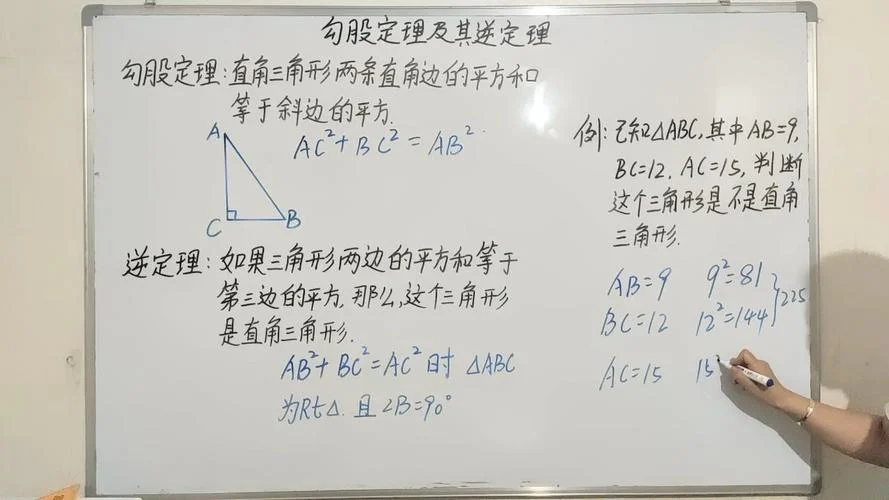 勾股定理及其逆定理
勾股定理:直角三角形两条直角边的平方和
等于斜边的平方.
A
AC²+BC²=AB².
C
B
逆定理:如果三角形两边的平方和等于
第三边的平方,那么,这个三角形
是直角三角形.
AB²+BC²=AC²时 △ABC
为Rt△.且∠B=90°
例:已知△ABC,其中AB=9,
BC=12,AC=15,判断
这个三角形是不是直角
三角形.
AB=9 9²=81
BC=12 12²=144
225
AC=15 15²